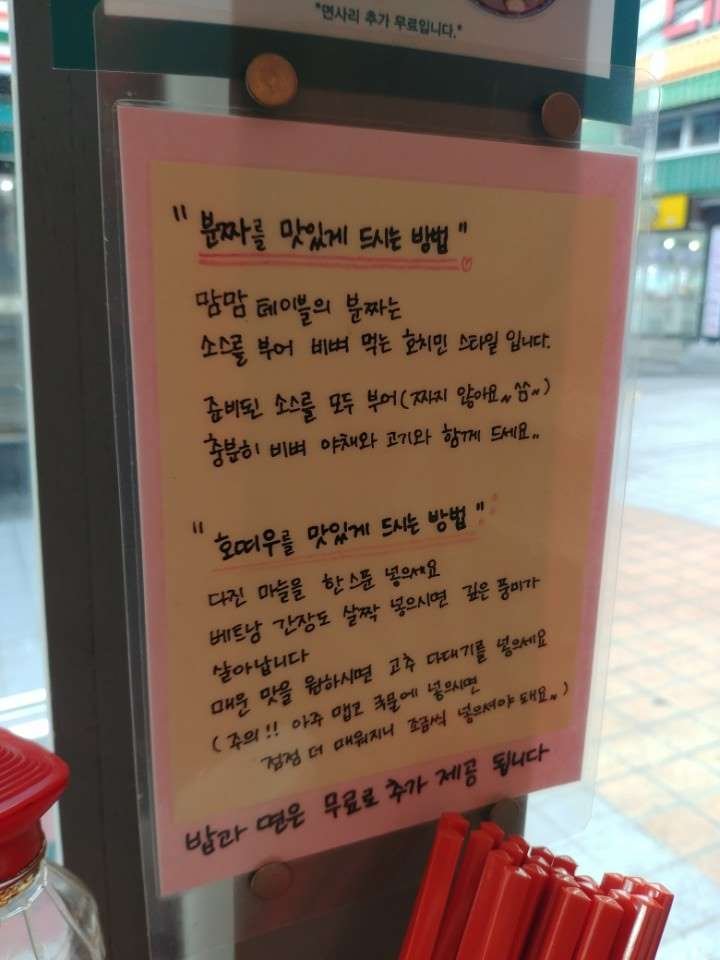 *면사리 추가 무료입니다.*
"분짜를 맛있게 드시는 방법"
맘맘 테이블의 분짜는
소스를 부어 비벼 먹는 호치민 스타일 입니다.
준비된 소스를 모두 부어(짜지 않아요~씀~)
충분히 비벼 야채와 고기와 함께 드세요..
"호띠우를 맛있게 드시는 방법"
다진 마늘을 한스푼 넣으세요
베트남 간장도 살짝 넣으시면 깊은 풍미가
살아납니다
매운 맛을 원하시면 고추 다대기를 넣으세요
(주의!! 아주 맵고 국물에 넣으시면
점점 더 매워지니 조금씩 넣으셔야 돼요~)
밥과 면은 무료로 추가 제공 됩니다